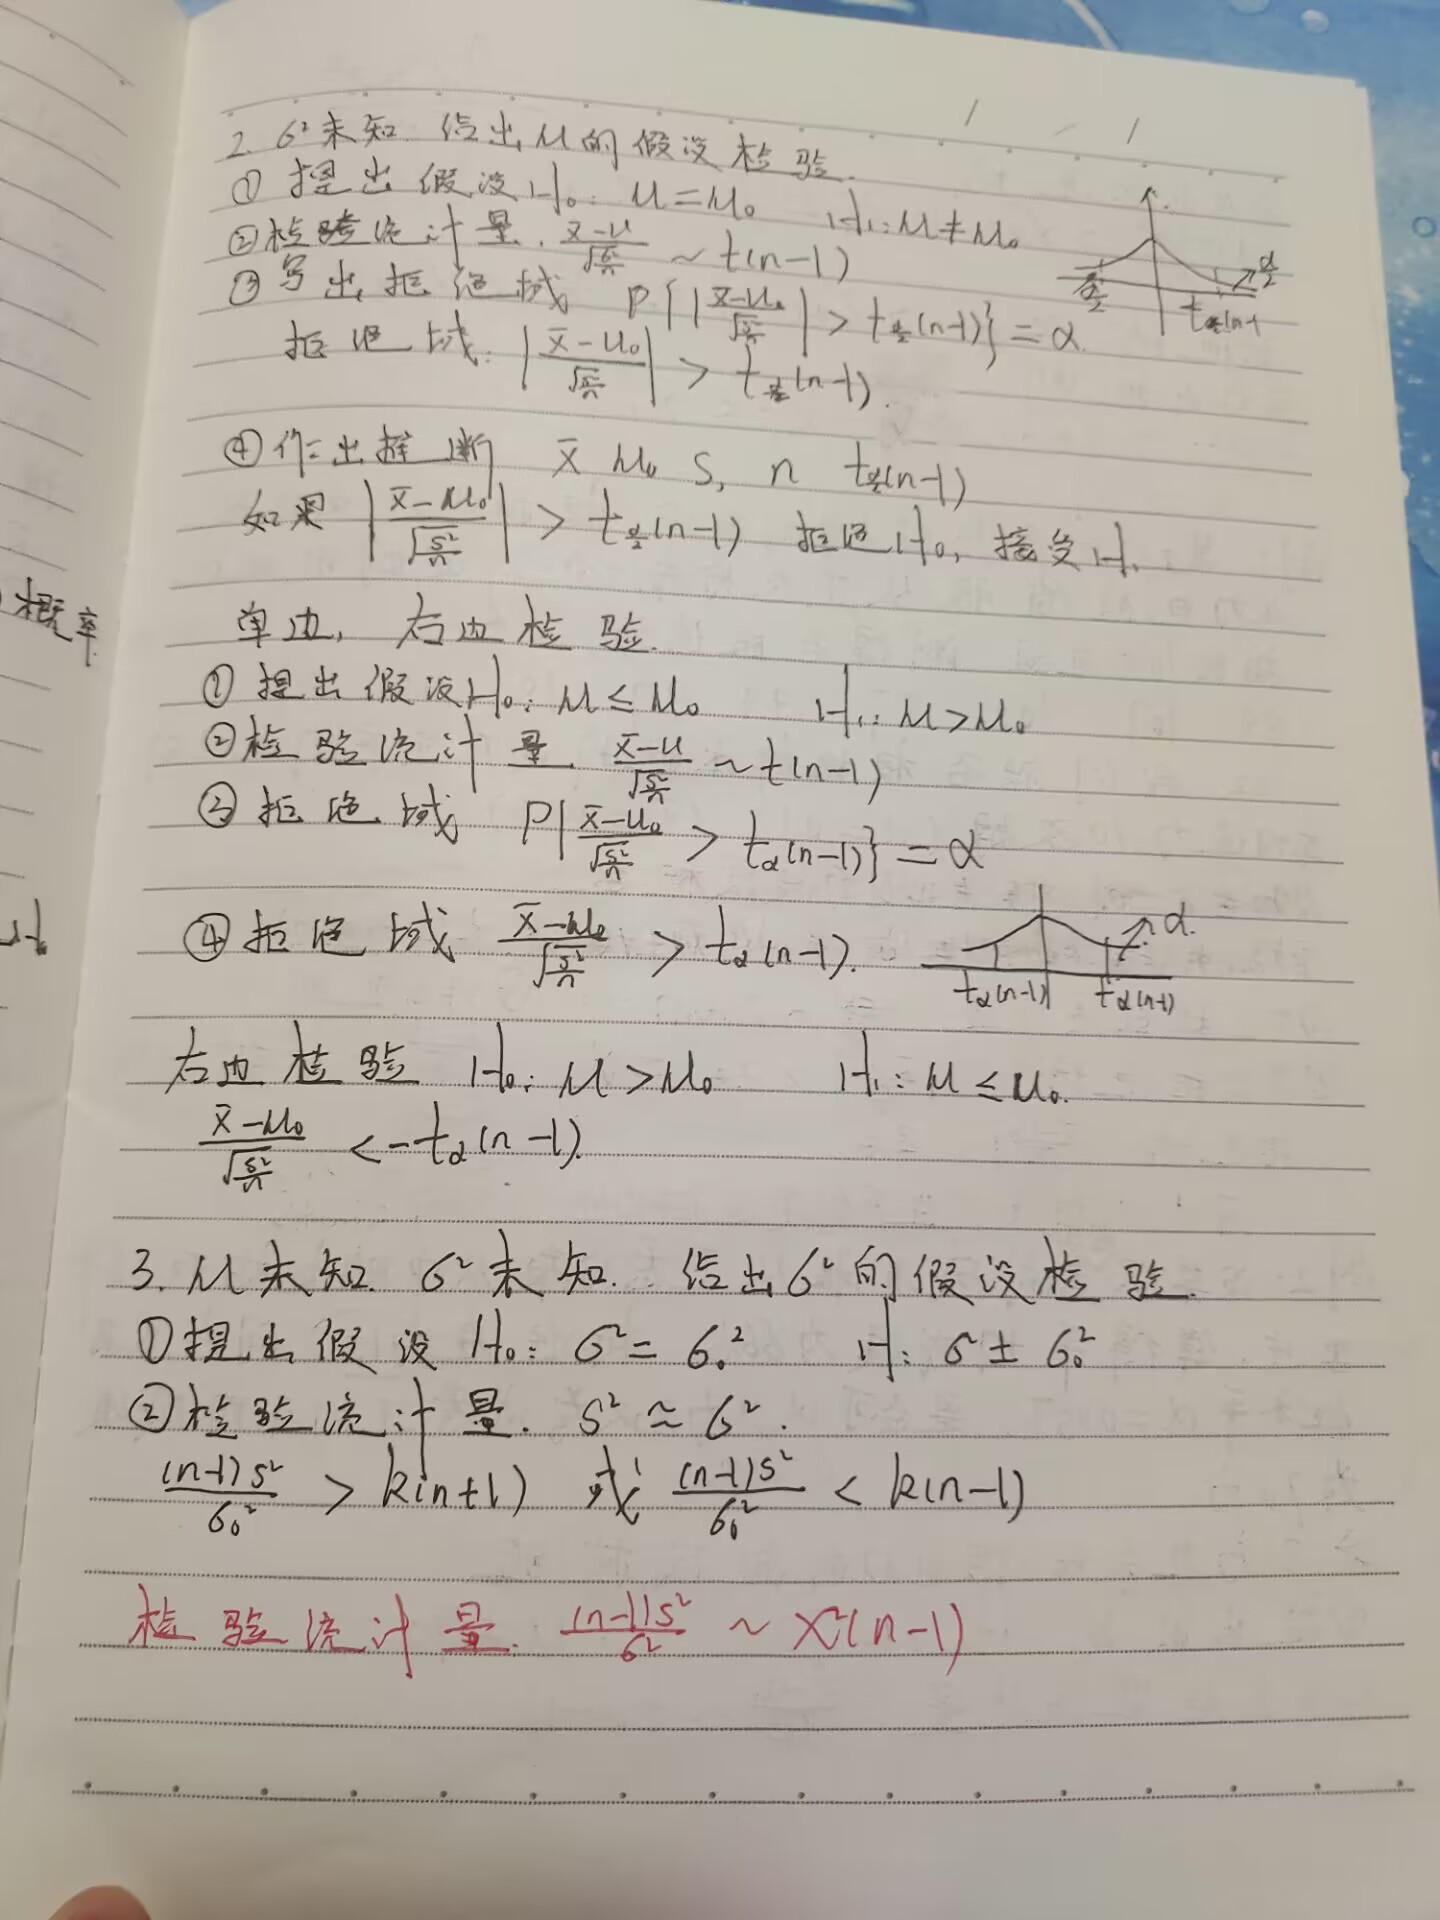 2. σ²未知 给出μ的假设检验.
① 提出假设H₀: μ=μ₀ H₁: μ≠μ₀
②检验统计量. (x̄-μ)/√(s²/n) ~ t(n-1)
③写出拒绝域 P{|(x̄-μ₀)/√(s²/n)| > t_{α/2}(n-1)} = α.
α/2 t_{α/2}(n-1 α/2
拒绝域: |(x̄-μ₀)/√(s²/n)| > t_{α/2}(n-1).
④作出推断 x̄ μ₀ S, n t_{α/2}(n-1)
如果 |(x̄-μ₀)/√(s²/n)| > t_{α/2}(n-1) 拒绝H₀, 接受H₁
单边, 右边检验.
① 提出假设H₀: μ≤μ₀ H₁: μ>μ₀
②检验统计量. (x̄-μ)/√(s²/n) ~ t(n-1)
③ 拒绝域 P{(x̄-μ₀)/√(s²/n) > t_α(n-1)} = α
④拒绝域 (x̄-μ₀)/√(s²/n) > t_α(n-1).
α.
t_α(n-1) t_α(n-1)
右边检验 H₀: μ>μ₀ H₁: μ≤μ₀.
(x̄-μ₀)/√(s²/n) < -t_α(n-1).
3. μ未知. σ²未知. 给出σ²的假设检验.
①提出假设 H₀: σ²=σ₀² H₁: σ²±σ₀²
②检验统计量. S²≈σ².
(n-1)S²/σ₀² > k(n+1) 或 (n-1)S²/σ₀² < k(n-1)
检验统计量. (n-1)S²/σ² ~ χ²(n-1)
概率